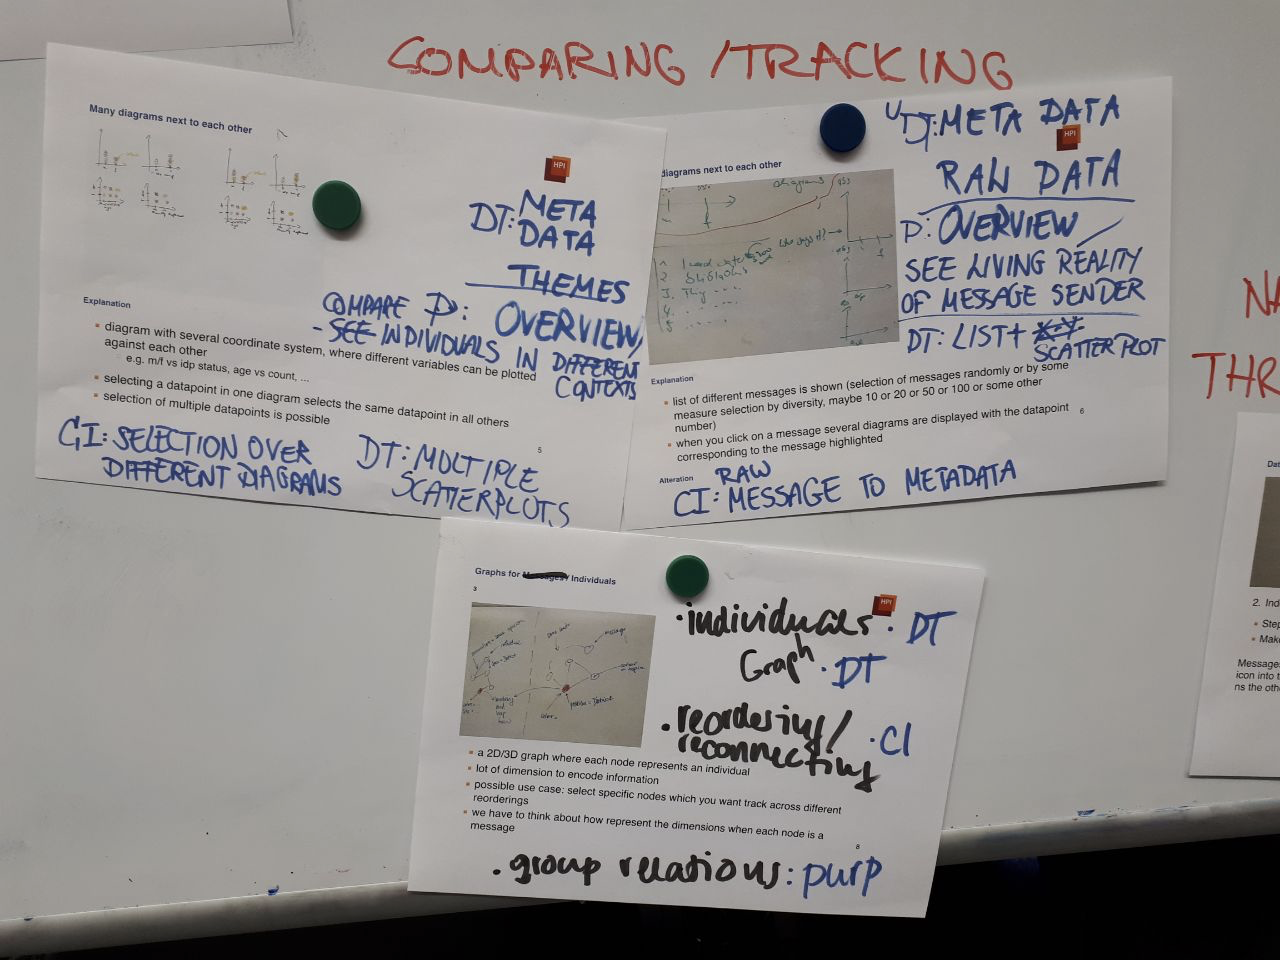 COMPARING /TRACKING
Many diagrams next to each other
HPI
DT: META
DATA
THEMES
COMPARE P: OVERVIEW,
- SEE INDIVIDUALS IN DIFFERENT
CONTEXTS
Explanation
diagram with several coordinate system, where different variables can be plotted
against each other
e.g. m/f vs idp status, age vs count, ...
selecting a datapoint in one diagram selects the same datapoint in all others
selection of multiple datapoints is possible
5
CI: SELECTION OVER
DIFFERENT DIAGRAMS
DT: MULTIPLE
SCATTERPLOTS
diagrams next to each other
DT: META DATA
HPI
RAW DATA
P: OVERVIEW
SEE LIVING REALITY
OF MESSAGE SENDER
DT: LIST+
SCATTERPLOT
diagrams
Explanation
list of different messages is shown (selection of messages randomly or by some
measure selection by diversity, maybe 10 or 20 or 50 or 100 or some other
number)
6
when you click on a message several diagrams are displayed with the datapoint
corresponding to the message highlighted
Alteration
RAW
CI: MESSAGE TO METADATA
Graphs for Messages/ Individuals
3
HPI
message
• individuals • DT
Graph • DT
• reordering/
reconnecting • CI
a 2D/3D graph where each node represents an individual
lot of dimension to encode information
possible use case: select specific nodes which you want track across different
reorderings
we have to think about how represent the dimensions when each node is a
message
8
• group relations: purp
NA
THR
Dat
2. Ind
Step
Make
Message
icon into t
ns the oth